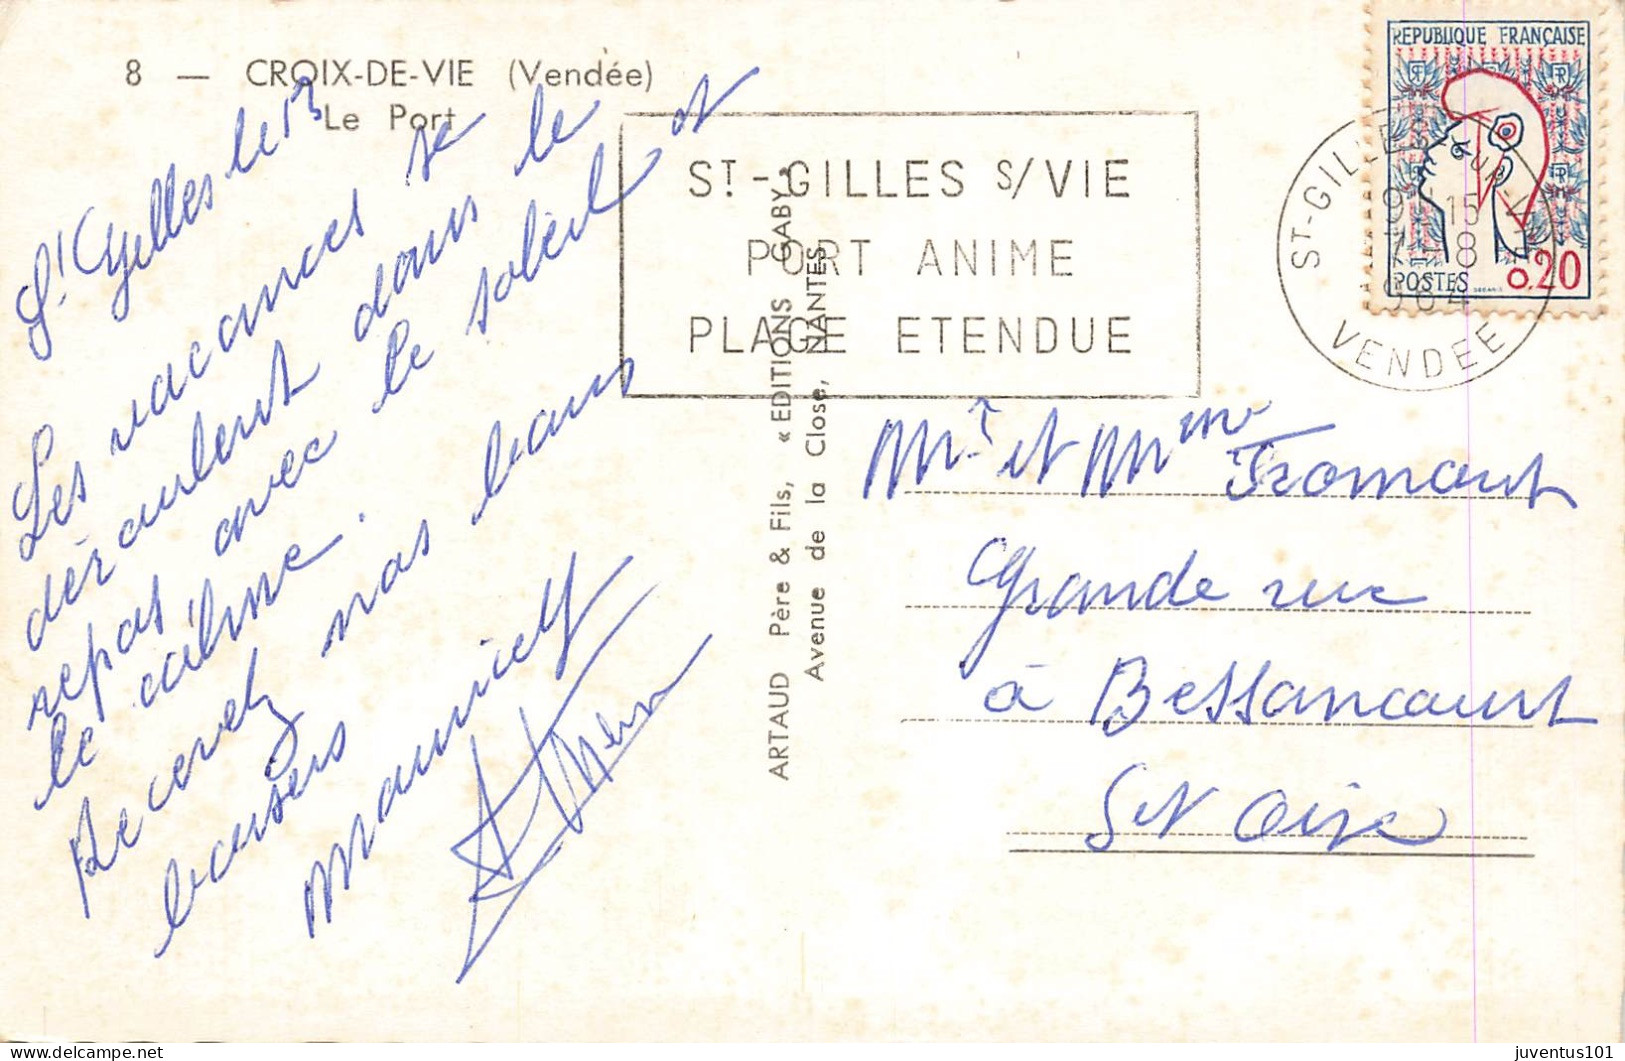 8 — CROIX-DE-VIE (Vendée)
Le Port
St Gilles le 13
Les vacances se
déroulent dans le
repos avec le soleil et
le calme.
Recevez nos bons
baisers
ST-GILLES S/VIE
PORT ANIME
PLAGE ETENDUE
ARTAUD Père & Fils, « EDITIONS GABY »
Avenue de la Close, NANTES
REPUBLIQUE FRANÇAISE
POSTES
0.20
ST-GILLES-SUR-VIE
15
7-8
1964
VENDEE
Mr et Mme Fromont
Grande rue
à Bessancourt
St Oise
juventus101